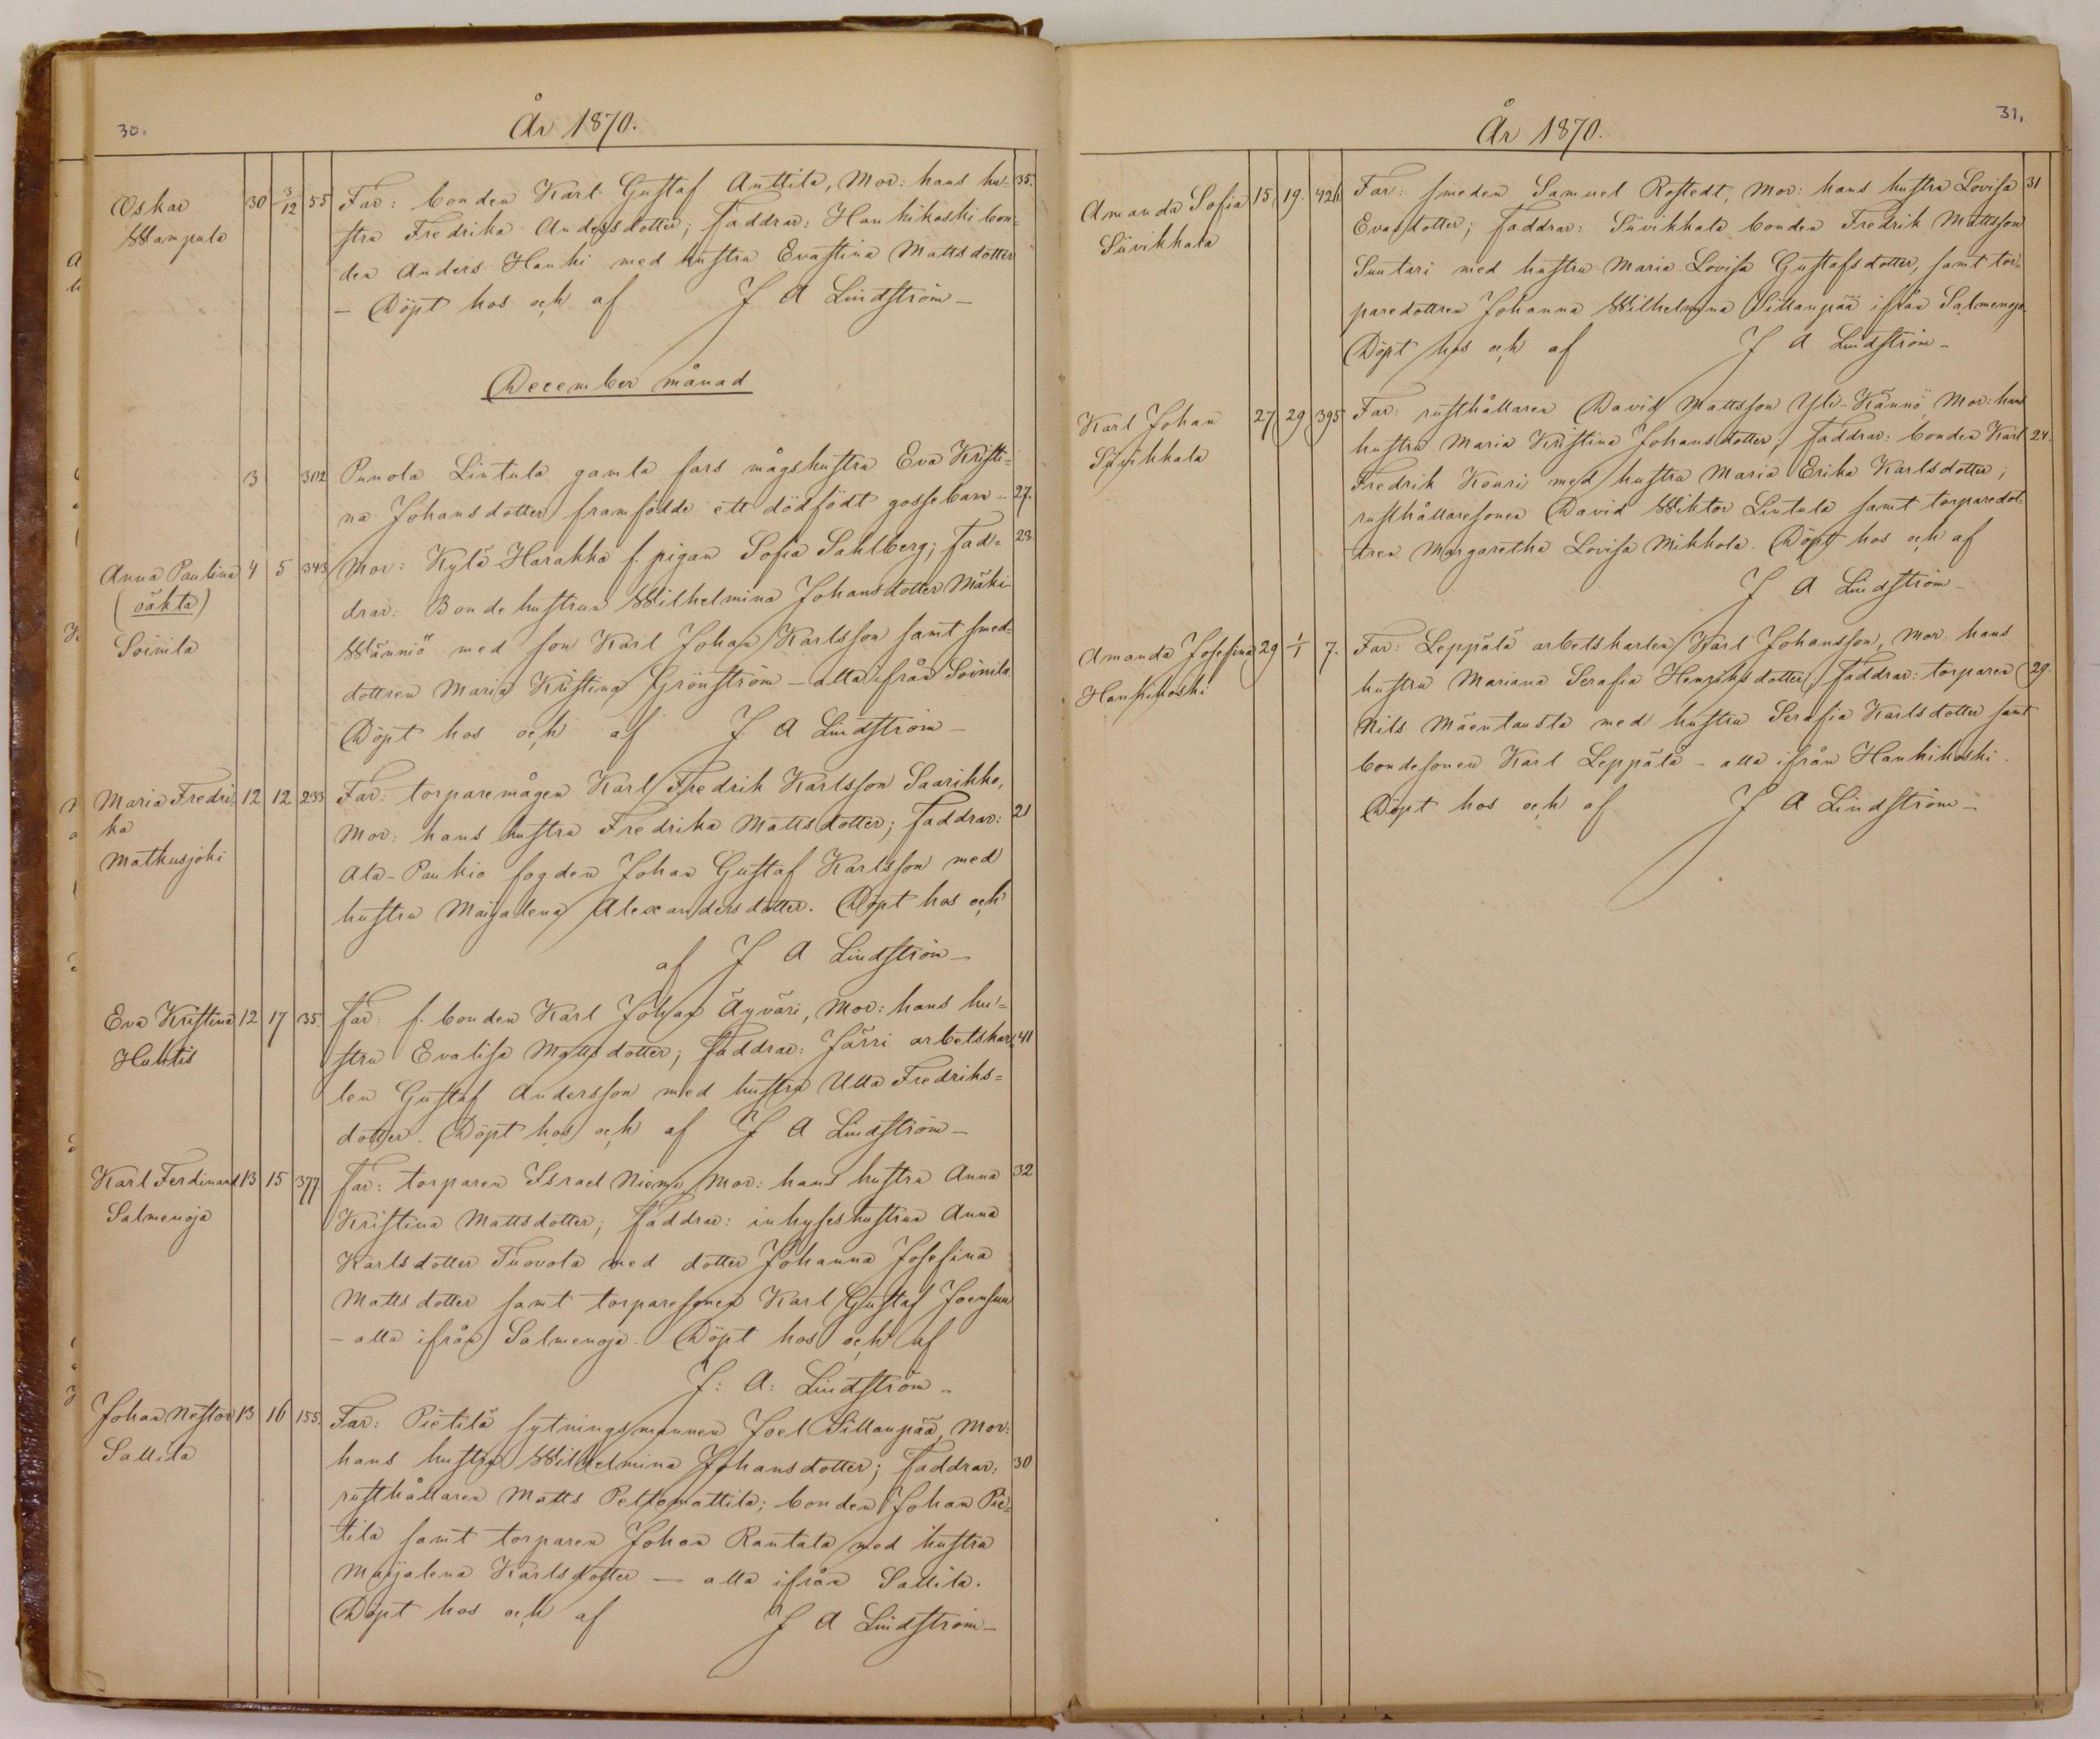 30.
År 1870.
Oskar 30 3/12 55 Far: bonden Karl Gustaf Anttila, Mor: hans hu- 35.
Wampula stra Fredrika Andersdotter; Faddrar: Hankikoski bon-
den Anders Hanki med hustru Evastina Mattsdotter
— Döpt hos och af J A Lindström —
December månad
3 302 Punola Lintula gamla fars mågshustru Eva Kristi-
na Johansdotter framfödde ett dödfödt gossebarn — 27.
Anna Paulina 4 5 343 Mor: Kylä Harakka f. pigan Sofia Sahlberg; Fad- 23.
(oäkta) drar: Bondehustrun Wilhelmina Johansdotter Mäki-
Soinila Wänniö med son Karl Johan Karlsson samt smed-
dottren Maria Kristina Grönström — alla ifrån Soinila
Döpt hos och af J A Lindström —
Maria Fredri- 12 12 233 Far: torparemågen Karl Fredrik Karlsson Saarikko,
ka Mor: hans hustru Fredrika Mattsdotter; Faddrar: 21
Mathusjoki Ala-Paukio fogden Johan Gustaf Karlsson med
hustru Maijalena Alexandersdotter. Döpt hos och
af J A Lindström —
Eva Kristina 12 17 35. Far: f. bonden Karl Johan Äyväri, Mor: hans hu-
Huhtis stru Evalisa Mattsdotter; Faddrar: Järri arbetskar- 41
len Gustaf Andersson med hustru Ulla Fredriks-
dotter. Döpt hos och af J A Lindström —
Karl Ferdinand 13 15 377 Far: torparen Israel Niemi Mor: hans hustru Anna 32
Salmenoja Kristina Mattsdotter; Faddrar: inhyseshustrun Anna
Karlsdotter Tuovola med dotter Johanna Josefina
Mattsdotter samt torparesonen Karl Gustaf Joensuu
— alla ifrån Salmenoja. Döpt hos och af
J: A: Lindström —
Johan Nestor 13 16 155. Far: Pietilä sytningsmannen Joel Sillanpää, Mor:
Sallila hans hustru Wilhelmina Johansdotter; Faddrar: 30
rusthållaren Matts Peltomattila; bonden Johan Pie-
tilä samt torparen Johan Rantala med hustru
Maijalena Karlsdotter — alla ifrån Sallila.
Döpt hos och af J A Lindström —
31.
År 1870.
Amanda Sofia 15 19. 426. Far: smeden Samuel Rostedt, Mor: hans hustru Lovisa 31
Siivikkala Evasdotter; Faddrar: Siivikkala bonden Fredrik Mattsson
Suutari med hustru Maria Lovisa Gustafsdotter, samt tor-
paredottren Johanna Wilhelmina Sillanpää ifrån Salmenoja
Döpt hos och af J A Lindström —
Karl Johan 27 29 395 Far: rusthållaren David Mattsson Yli-Kännö, Mor: hans
Siivikkala hustru Maria Kristina Johansdotter; Faddrar: bonden Karl 24.
Fredrik Kouri med hustru Maria Erika Karlsdotter;
rusthållaresonen David Wiktor Lintula samt torparedot-
tren Margaretha Lovisa Mikkola. Döpt hos och af
J A Lindström —
Amanda Josefina 29 1/1 7. Far: Leppälä arbetskarlen Karl Johansson, Mor: hans
Hankikoski hustru Mariana Serafia Henriksdotter; Faddrar: torparen 29.
Nils Mäentausta med hustru Serafia Karlsdotter samt
bondesonen Karl Leppälä — alla ifrån Hankikoski.
Döpt hos och af J A Lindström —